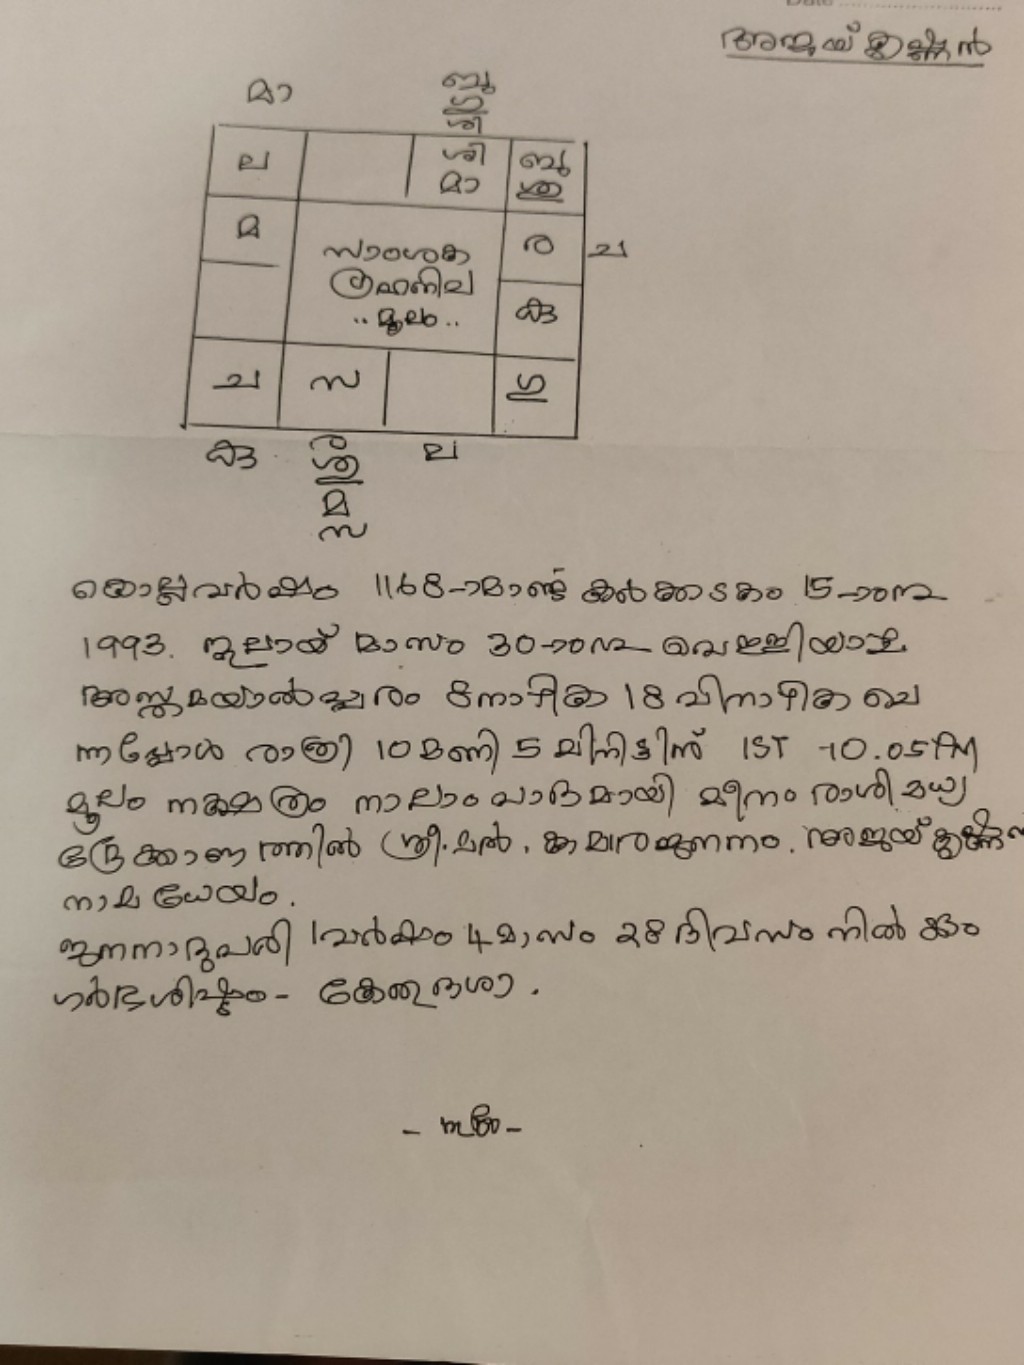 Date
അജയ് കൃഷ്ണൻ
മാ
ബു
ഗു
ശി
ല
ശി
മാ
ബു
ശു
മ
ര
ച
സാംശക
ഗ്രഹനില
.. മൂലം ..
കു
ച
സ
ഗു
കു
ര
ശു
മ
സ
ല
കൊല്ലവർഷം 1168-ാമാണ്ട് കർക്കടകം 15-ാംനു
1993. ജൂലായ് മാസം 30-ാംനു വെള്ളിയാഴ്ച
അസ്തമയാൽപ്പരം 8 നാഴിക 18 വിനാഴിക ചെ
ന്നപ്പോൾ രാത്രി 10 മണി 5 മിനിട്ടിന് IST -10.05 PM
മൂലം നക്ഷത്രം നാലാംപാദമായി മീനംരാശി മധ്യ
ദ്രേക്കാണത്തിൽ സ്ത്രീ.മൽ. കുമാരജനനം. അജയ് കൃഷ്ണൻ
നാമധേയം.
ജനനാദുപരി 1വർഷം 4 മാസം 28 ദിവസം നിൽക്കും
ഗർഭശിഷ്ടം - കേതുദശാ.